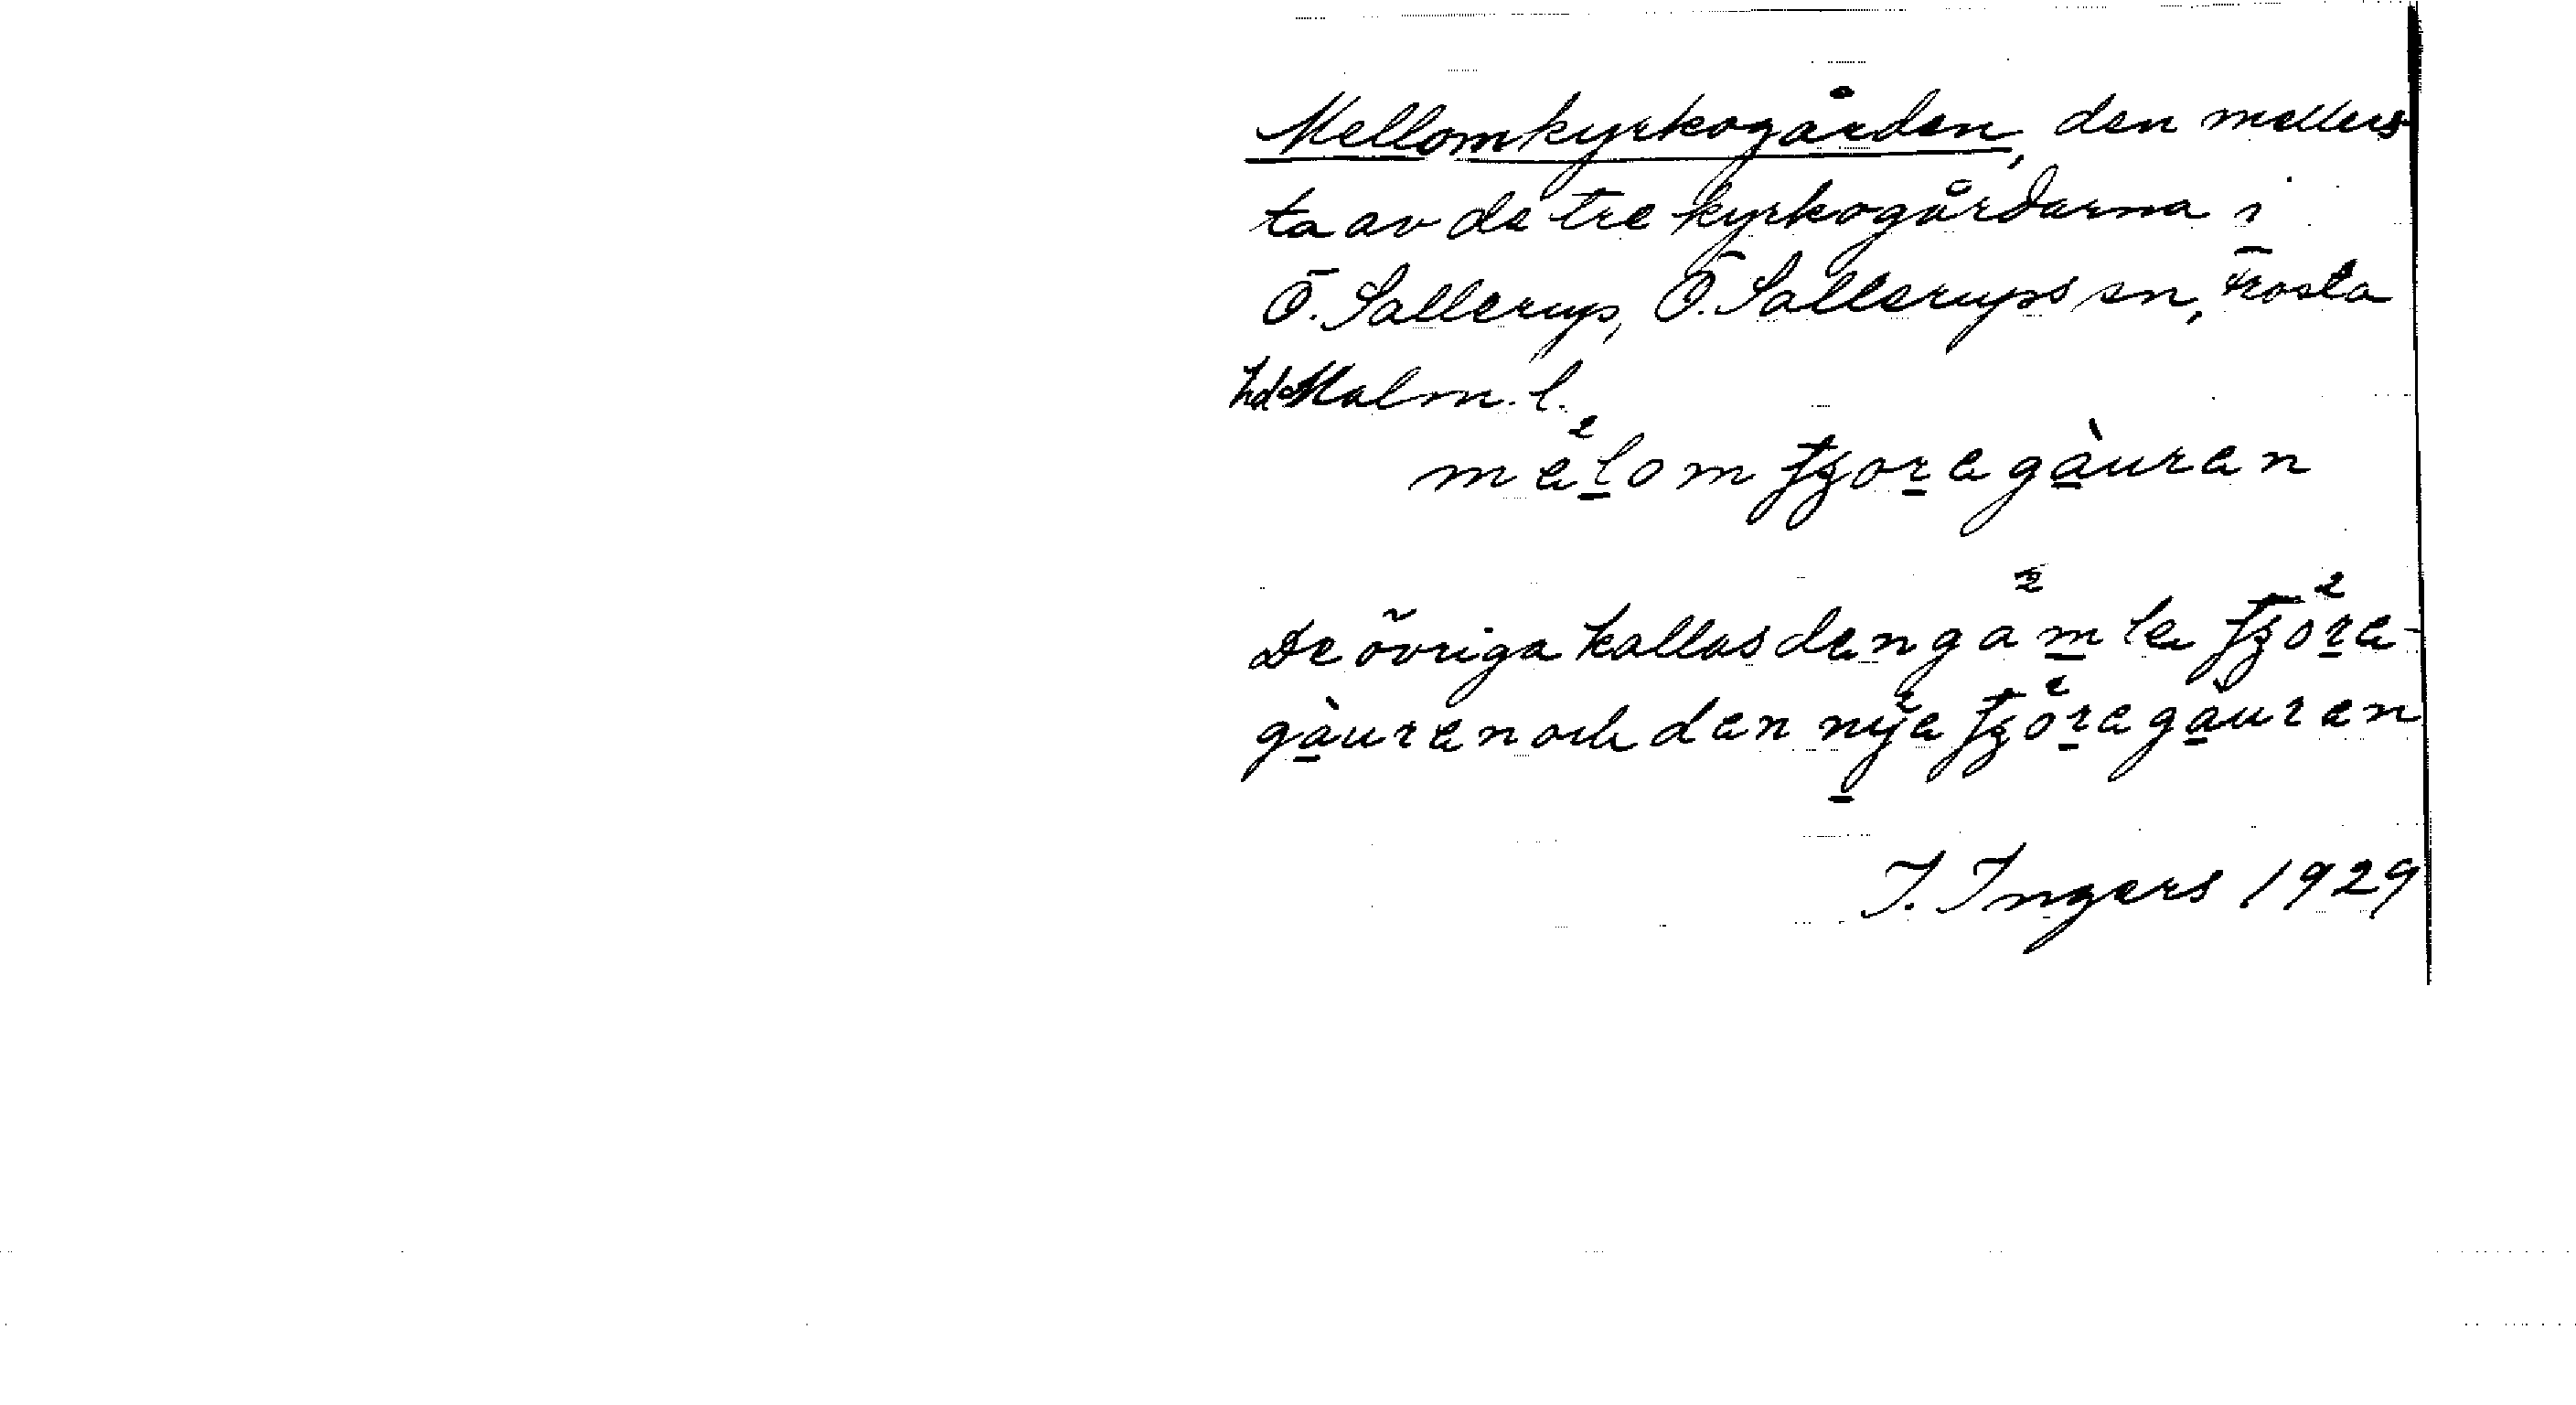 Mellomkyrkogården, den mellers-
ta av de tre kyrkogårdarna i
Ö. Sallerup, Ö. Sallerups sn, Frosta
hd Malm. l.
me²l̲omtʒor̲egàu̲ren
De övriga kallas den ga²m̲le tʒo²r̲e-
gàu̲ren och den ny̲²e tʒo²r̲egàu̲ren
I. Ingers 1929